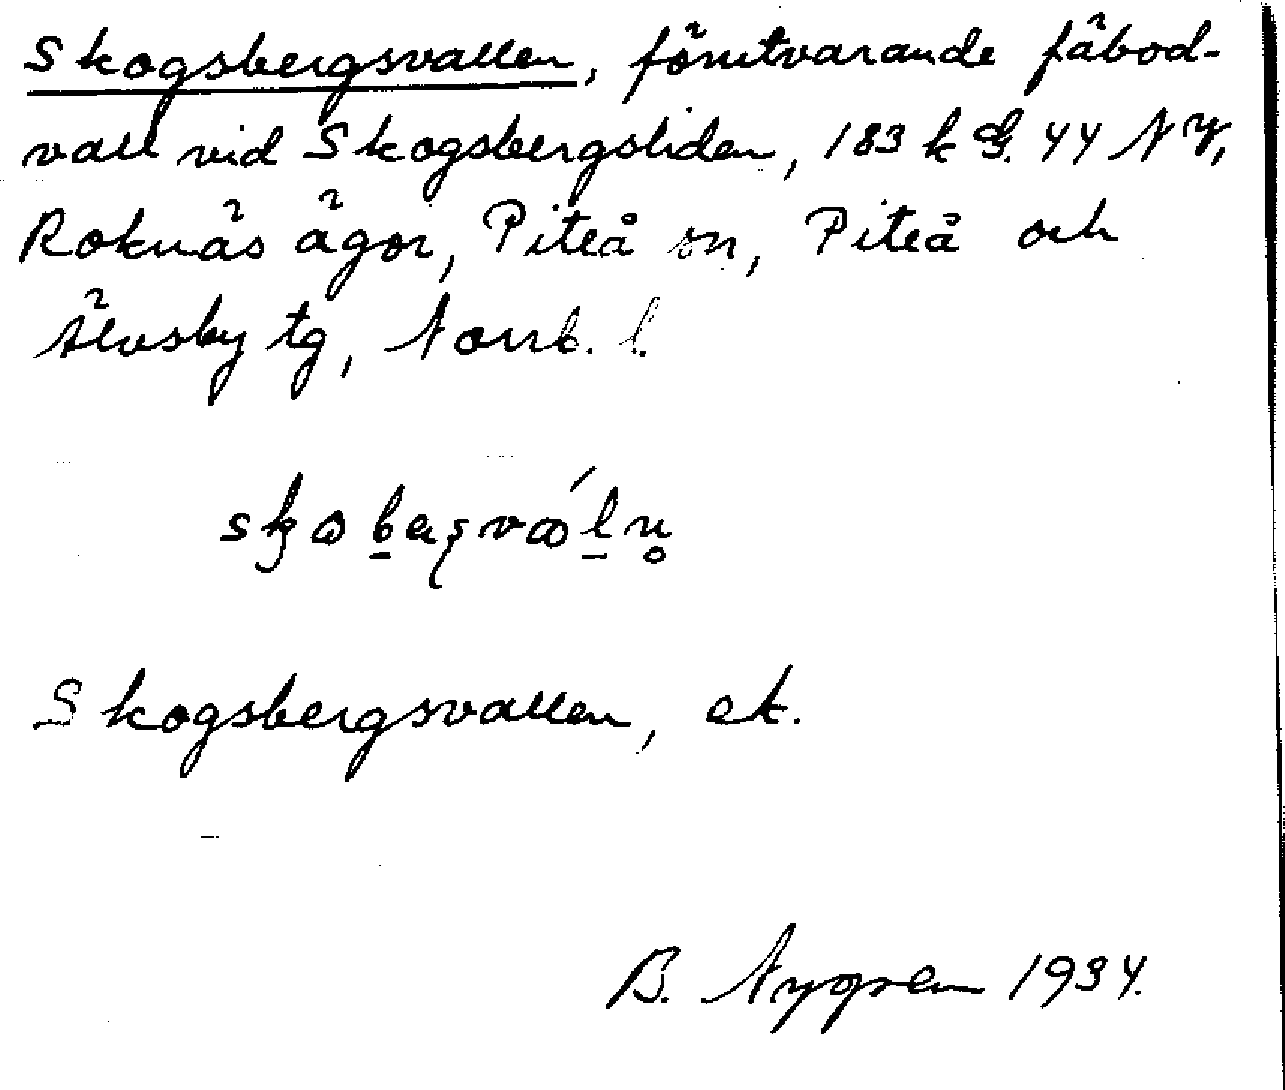 Skogsbergsvallen, förutvarande fäbod-
vall vid Skogsbergsliden, 183 k G. 44 NV,
Roknäs ägor, Piteå sn, Piteå och
Älvsby tg, Norrb. l.
Skogsbergsvallen, ek.
B. Nygren 1934.